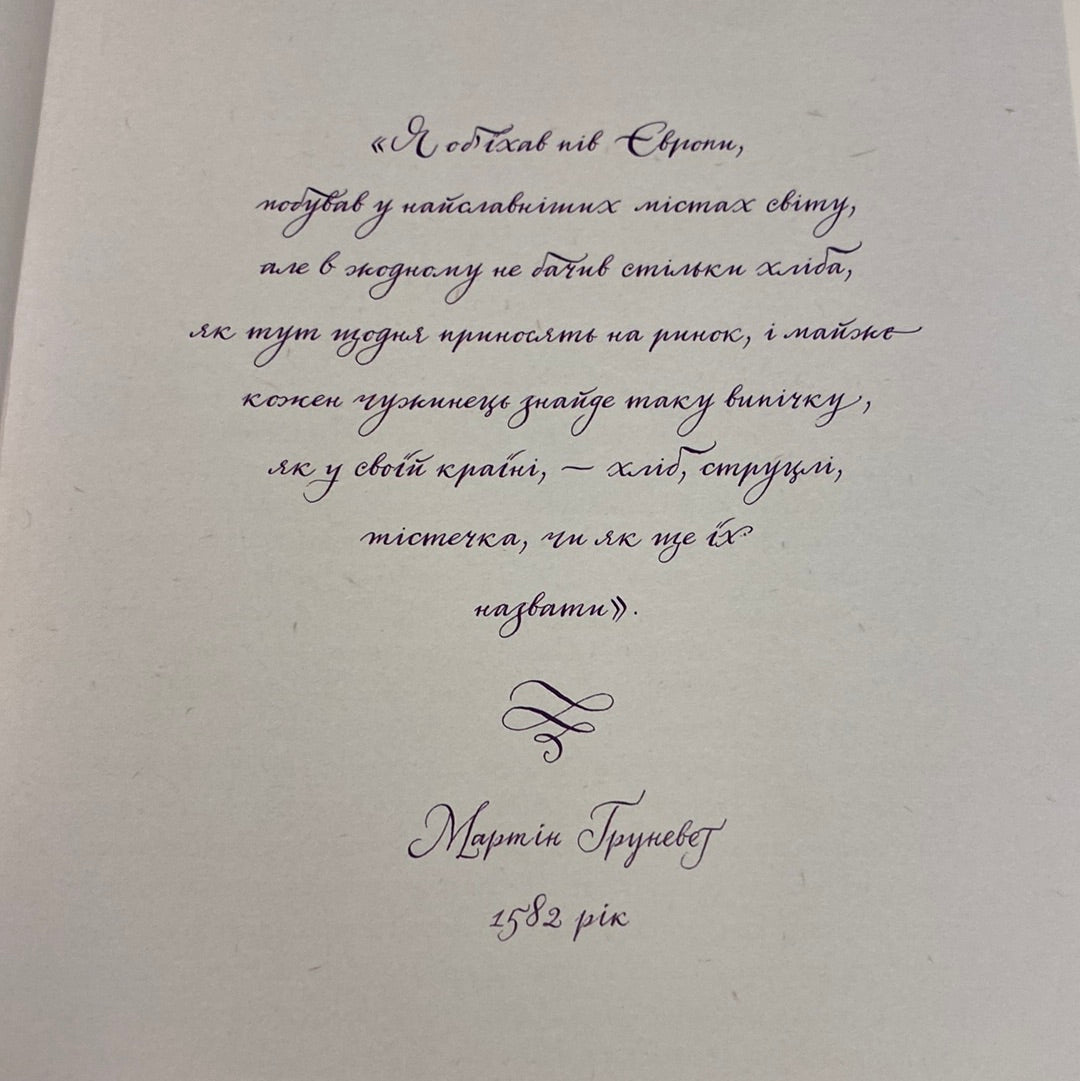 «Я об'їхав пів Європи,
побував у найславніших містах світу,
але в жодному не бачив стільки хліба,
як тут щодня приносять на ринок, і майже
кожен чужинець знайде таку випічку,
як у своїй країні, — хліб, струцлі,
тістечка, чи як ще їх
назвати».
Мартін Ґруневеґ
1582 рік